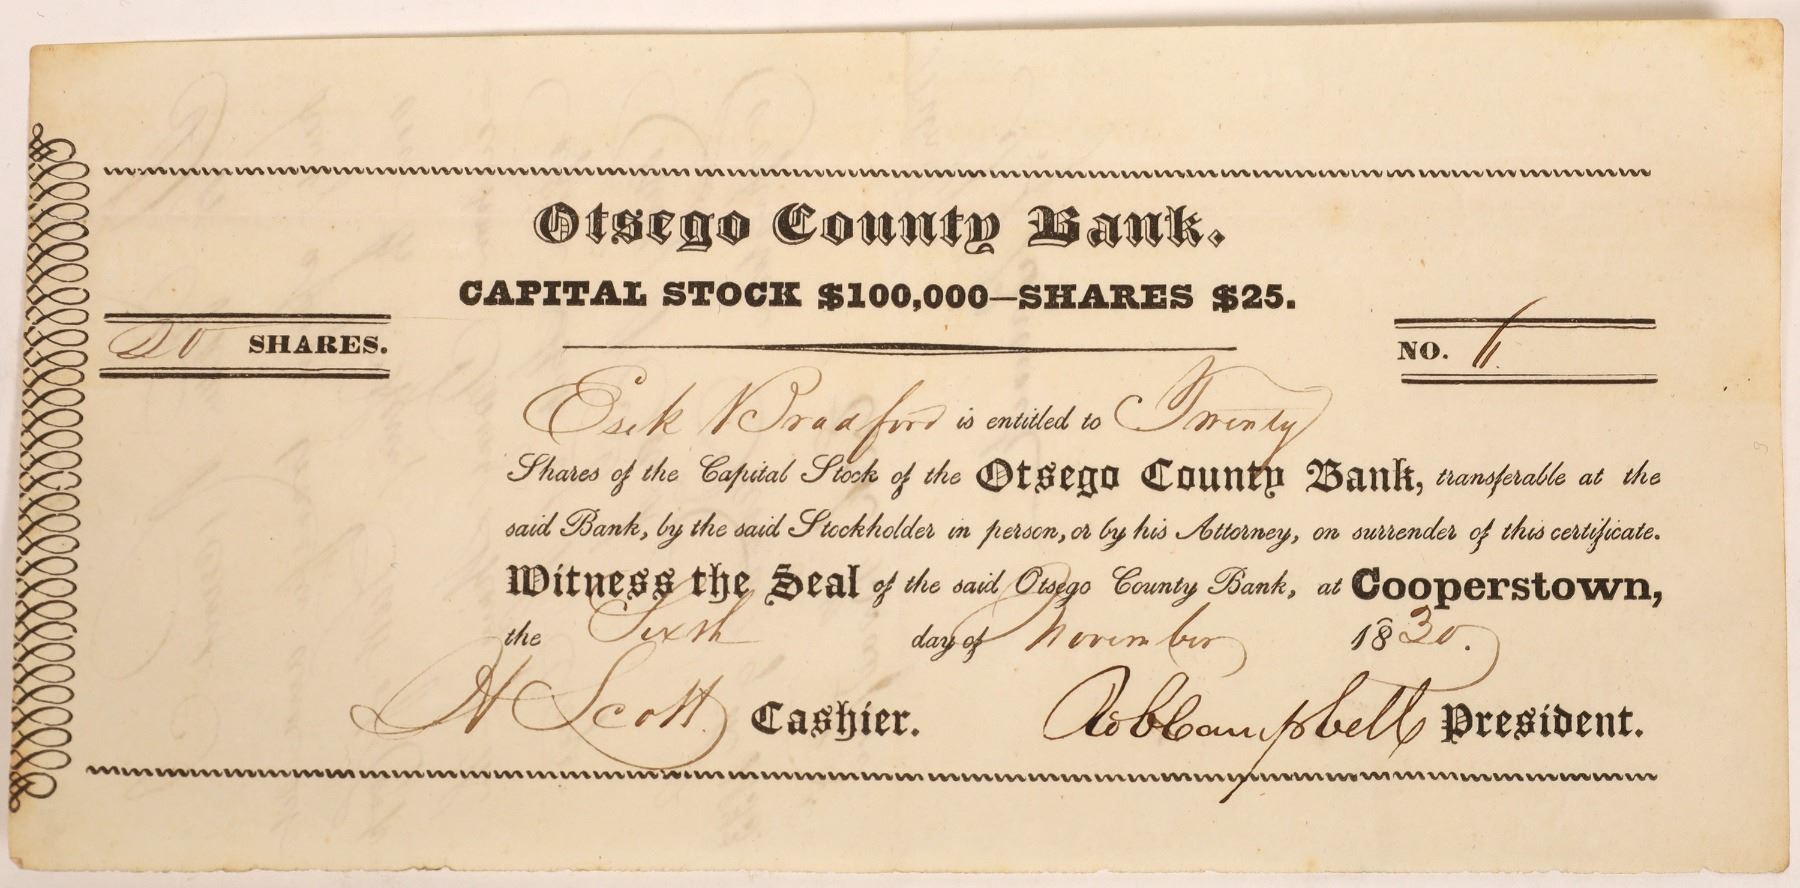 Otsego County Bank.
CAPITAL STOCK $100,000—SHARES $25.
20 SHARES.
NO. 6
Esek Bradford is entitled to Twenty
Shares of the Capital Stock of the Otsego County Bank, transferable at the
said Bank, by the said Stockholder in person, or by his Attorney, on surrender of this certificate.
Witness the Seal of the said Otsego County Bank, at Cooperstown,
the Sixth day of November 1830.
H Scott Cashier.
Rob Campbell President.